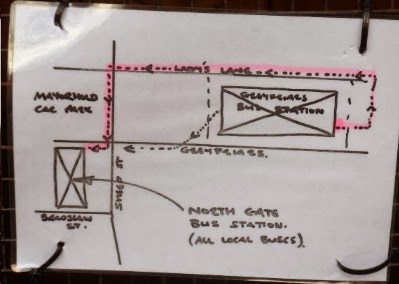 LADY'S LANE
MAYORHOLD
CAR PARK
GREYFRIARS
BUS STATION
GREYFRIARS.
SHEEP ST
BRADSHAW
ST.
NORTH GATE
BUS STATION.
(ALL LOCAL BUSES)